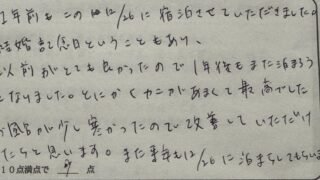 1年前もこの日に1/26に宿泊させていただきました。
結婚記念日ということもあり、
以前がとても良かったので1年後もまた泊まろう
となりました。とにかくカニがあまくて最高でした
お風呂が少し寒かったので改善していただけ
たらと思います。また来年も1/26に泊まらしてもらいま
10点満点で 9 点